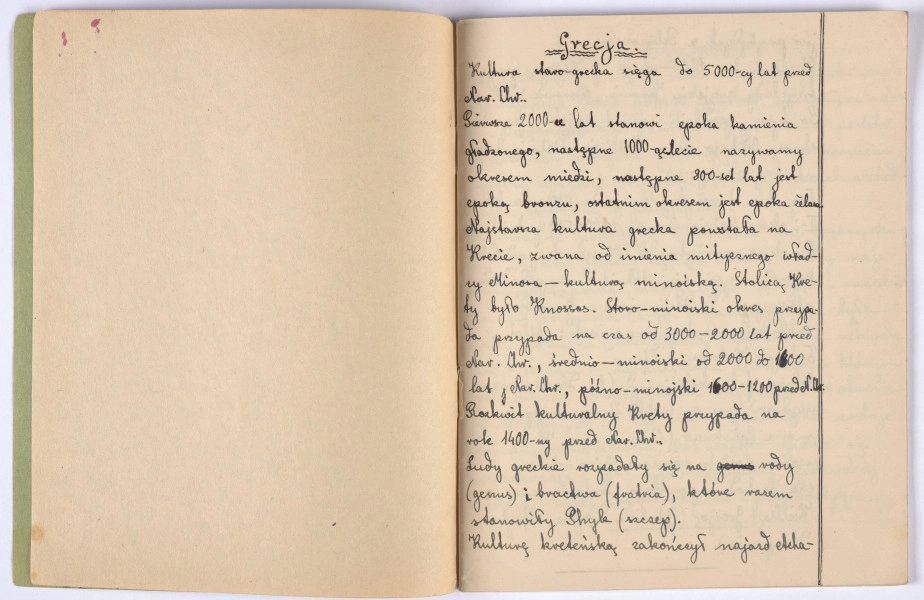 Grecja.
Kultura staro-grecka sięga do 5000-cy lat przed
Nar. Chr..
Pierwsze 2000-ce lat stanowi epoka kamienia
gładzonego, następne 1000-ąclecie nazywamy
okresem miedzi, następne 800-set lat jest
epoką bronzu, ostatnim okresem jest epoka żelaza.
Najstarsza kultura grecka powstała na
Krecie, zwana od imienia mitycznego wład-
cy Minosa – kulturą minoiską. Stolicą Kre-
ty było Knossos. Staro-minoiski okres przypa-
da przypada na czas od 3000–2000 lat przed
Nar. Chr., średnio-minoiski od 2000 do 1600
lat p Nar. Chr., późno-minojski 1600–1200 przed N. Chr.
Rozkwit kulturalny Krety przypada na
rok 1400-ny przed Nar. Chr..
Ludy greckie rozpadały się na genus rody
(genus) i bractwa (fratria), które razem
stanowiły Phyle (szczep).
Kulturę kreteńską zakończył najazd etcha-